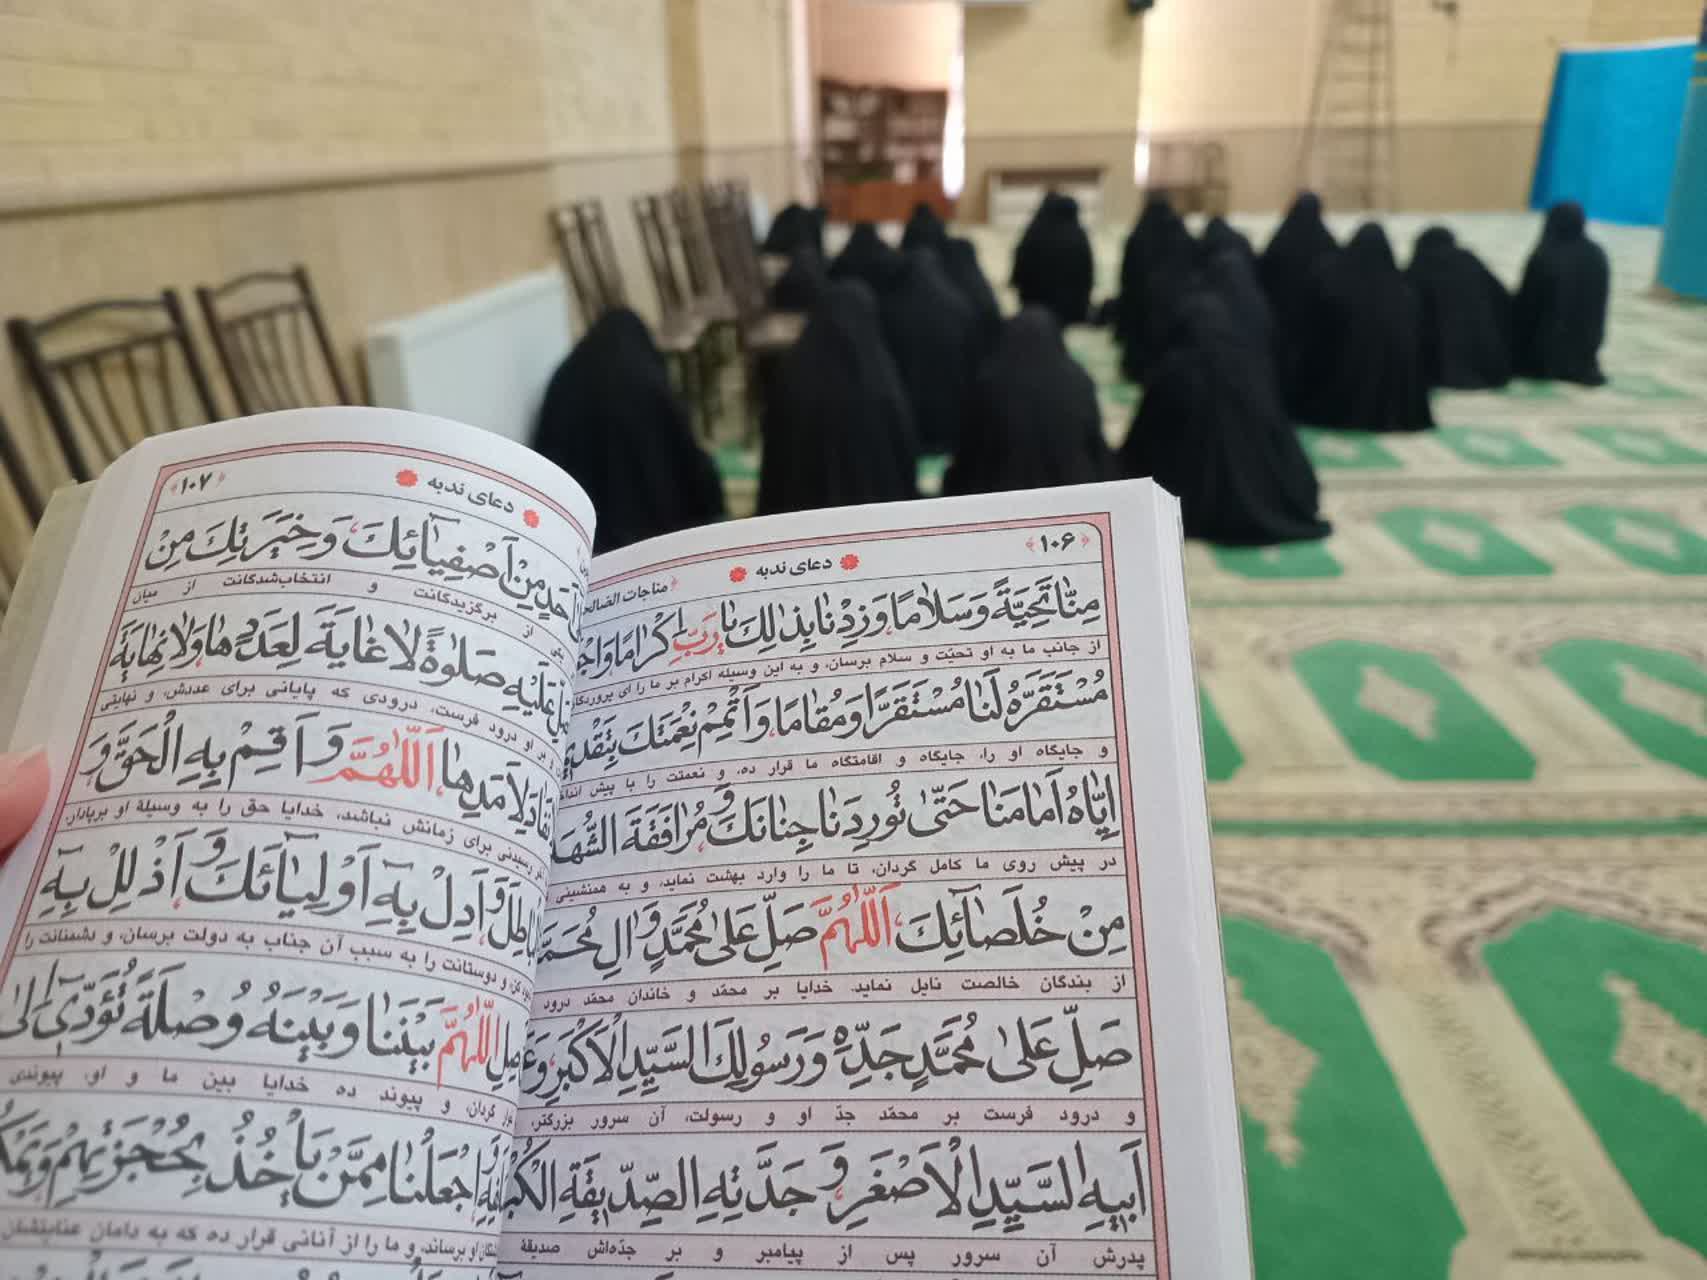 ﴿۱۰۶﴾
دعای ندبه
مناجات
مِنّا تَحِيَّةً وَسَلامًا، وَزِدْنا بِذلِكَ يا رَبِّ اِكْرامًا،
از جانب ما به او تحیّت و سلام برسان، و به این وسیله اکرام بر ما را ای
مُسْتَقَرَّهُ لَنا مُسْتَقَرًّا وَمُقامًا، وَاَتْمِمْ نِعْمَتَكَ
و جایگاه او را، جایگاه و اقامتگاه ما قرار ده، و نعمتت را با پیش
اِيّاهُ اَمامَنا حَتّى تُورِدَنا جِنانَكَ، وَمُرافَقَةَ
در پیش روی ما کامل گردان، تا ما را وارد بهشت نماید، و به همنشینی
مِنْ خُلَصائِكَ، اَللّهُمَّ صَلِّ عَلى مُحَمَّدٍ وَالِ
از بندگان خالصت نایل نماید. خدایا بر محمّد و خاندان محمّد درود
صَلِّ عَلى مُحَمَّدٍ جَدِّهِ وَرَسُولِكَ السَّيِّدِ الْاَكْبَرِ،
و درود فرست بر محمّد جدّ او و رسولت، آن سرور بزرگتر،
اَبيهِ السَّيِّدِ الْاَصْغَرِ، وَجَدَّتِهِ الصِّدّيقَةِ
پدرش آن سرور پس از پیامبر و بر جدّه‌اش صدیقهٔ
﴿۱۰۷﴾
دعای ندبه
مِنْ اَصْفِيائِكَ، وَخِيَرَتِكَ مِنْ
از برگزیدگانت و انتخاب‌شدگانت از میان
عَلَيْهِ صَلوةً لا غايَةَ لِعَدَدِها، وَلا نِهايَةَ
و بر او درود فرست، درودی که پایانی برای عددش، و نهایتی
لِاَمَدِها، اَللّهُمَّ وَاَقِمْ بِهِ الْحَقَّ، وَ
برای زمانش نباشد، خدایا حق را به وسیلهٔ او برپادار،
وَاَدِلْ بِهِ اَوْلِيائَكَ، وَاَذْلِلْ بِهِ
و دوستانت را به سبب آن جناب به دولت برسان، و دشمنانت را
اللّهُمَّ بَيْنَنا وَبَيْنَهُ وُصْلَةً تُؤَدّى اِلى
گردان، و پیوند ده خدایا بین ما و او، پیوندی
وَاجْعَلْنا مِمَّنْ يَاْخُذُ بِحُجْزَتِهِمْ،
او برساند، و ما را از آنانی قرار ده که به دامان عنایتشان